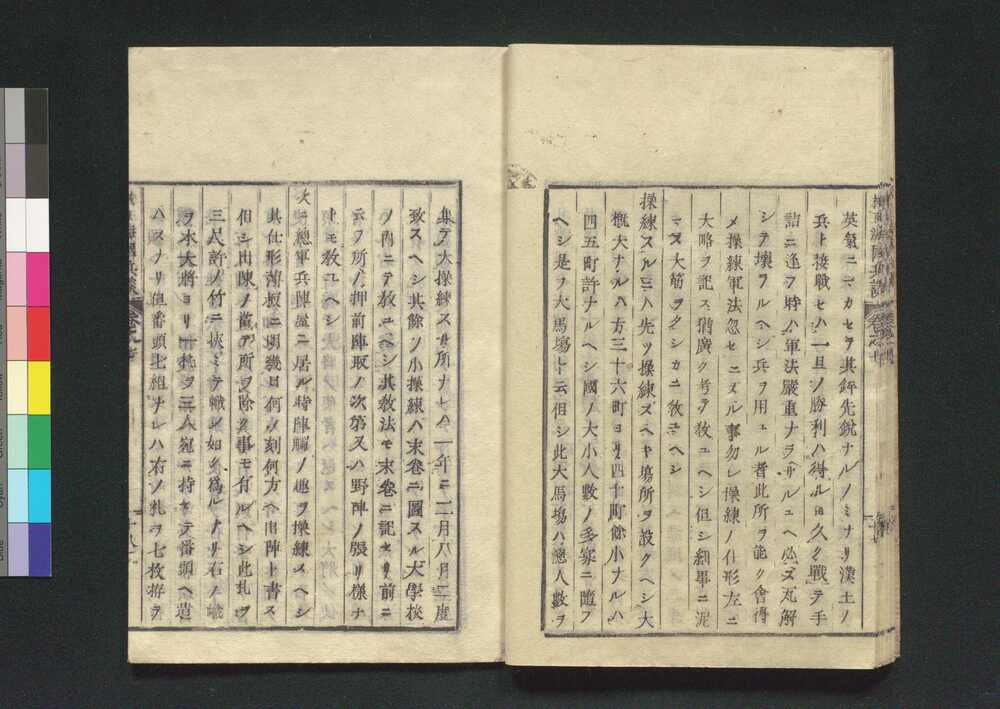 英氣ニマカセテ其鉾先銳ナルノミナリ漢土ノ
兵ト接戰セハ一旦ノ勝利ハ得ルヨ久ク戰テ手
詰ニ逢フ時ハ軍法嚴重ナラサルユヘ必ズ瓦解
シテ壞ヲルヘシ兵ヲ用ユル者此所ヲ能ク會得
メ操練軍法忽セニスル事勿レ操練ノ仕形左ニ
大略ヲ記ス猶廣ク考テ敎ユヘシ但シ細事ニ泥
マス大筋ヲタシカニ敎ユヘシ
操練スルニハ先ツ操練スヘキ塲所ヲ設クヘシ大
概大ナルハ方三十六町ヨリ四十町餘小ナルハ
四五町許ナルヘシ國ノ大小人數ノ多寡ニ隨フ
ヘシ是ヲ大馬塲ト云但シ此大馬塲ハ惣人數ヲ
集テ大操練スル所ナレハ一年ニ二月八月二度
致スヘシ其餘ノ小操練ハ末卷ニ圖スル大學校
ノ内ニテ敎ユヘシ其敎法モ末卷ニ記セリ前ニ
云フ所ノ押前陣取ノ次第又ハ野陣ノ張リ樣ナ
トモ敎ユヘシ
次ニ總軍兵陣屋ニ居ル時陣觸ノ趣ヲ操練スヘシ
其仕形薄板ニ明幾日何ノ刻何方ヘ出陣ト書ス
但シ出陳ノ黨ア所ヲ除ク事モ有ルヘシ此札ヲ
三尺許ノ竹ニ挾ミテ幟ノ如ク爲ルナリ右ノ幟
ヲ本大將ヨリ一托ヲ三人宛ニ持セテ番頭ヘ遣
ハスナリ但番頭七組ナレハ右ノ札ヲ七枚拵テ